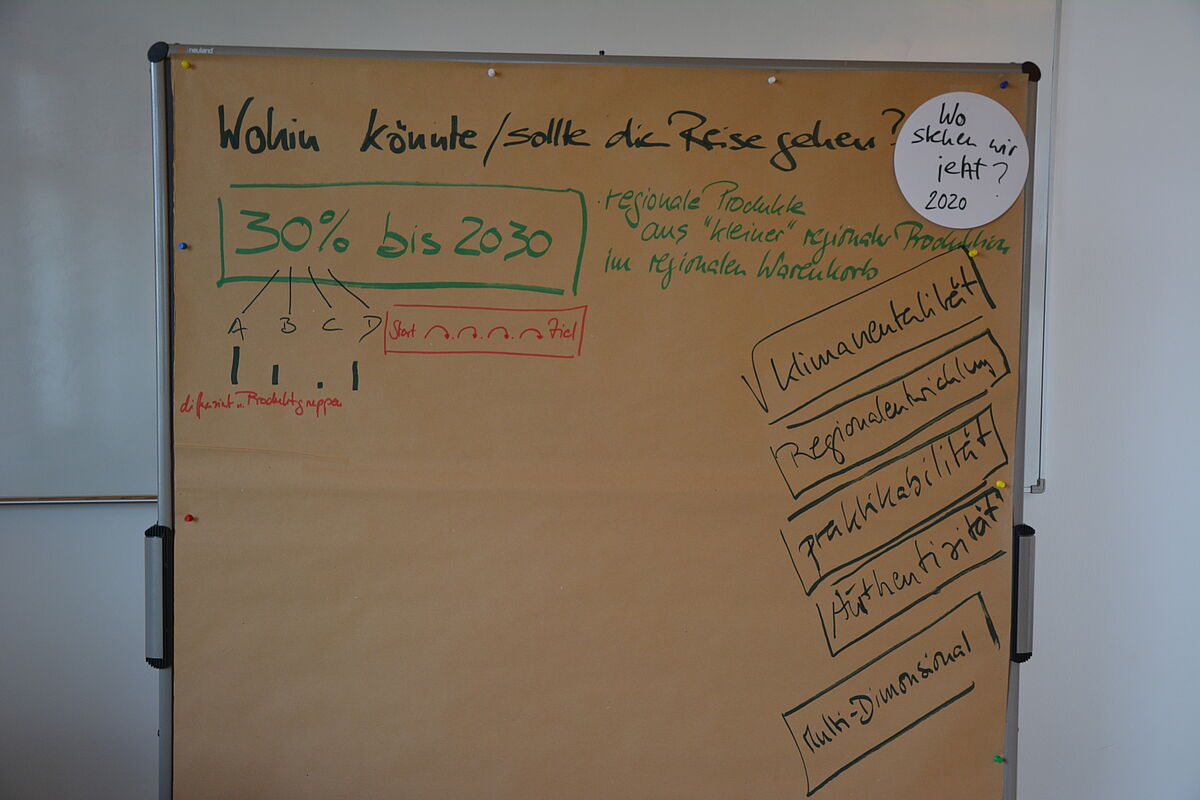 neuland
Wohin könnte/sollte die Reise gehen?
Wo
stehen wir
jetzt?
2020
30% bis 2030
regionale Produkte
aus "kleiner" regionaler Produktion
im regionalen Warenkorb
A B C D
Start Ziel
Produktgruppen
Klimaneutralität
Regionalentwicklung
Praktikabilität
Authentizität
Multi-Dimensional